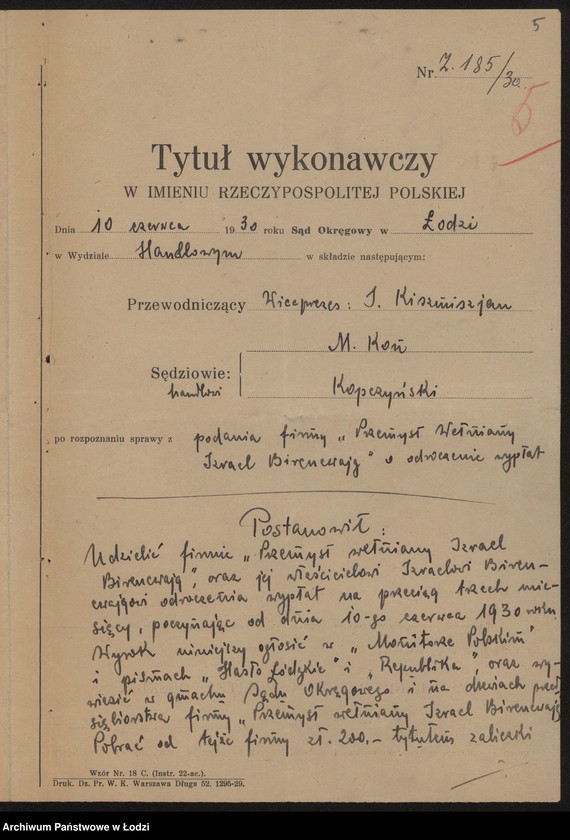 5
Nr. Z. 185/30
5
Tytuł wykonawczy
W IMIENIU RZECZYPOSPOLITEJ POLSKIEJ
Dnia 10 czerwca 1930 roku Sąd Okręgowy w Łodzi
w Wydziale Handlowym w składzie następującym:
Przewodniczący Wiceprezes: J. Kiszmiszjan
M. Koń
Sędziowie:
handlowi Kopczyński
po rozpoznaniu sprawy z podania firmy „Przemysł Wełniany
Izrael Birencwajg" o odroczenie wypłat
Postanowił:
Udzielić firmie „Przemysł wełniany Izrael
Birencwajg", oraz jej właścicielowi Izraelowi Biren-
cwajgowi odroczenia wypłat na przeciąg trzech mie-
sięcy, poczynając od dnia 10-go czerwca 1930 roku.
Wyrok niniejszy ogłosić w „Monitorze Polskim"
i pismach „Hasło Łódzkie" i „Republika", oraz wy-
wiesić w gmachu Sądu Okręgowego i na drzwiach przed-
siębiorstwa firmy „Przemysł wełniany Izrael Birencwajg
Pobrać od tejże firmy zł. 200,- tytułem zaliczki
Wzór Nr. 18 C. (Instr. 22-ac.).
Druk. Dz. Pr. W. K. Warszawa Długa 52. 1295-29.
Archiwum Państwowe w Łodzi